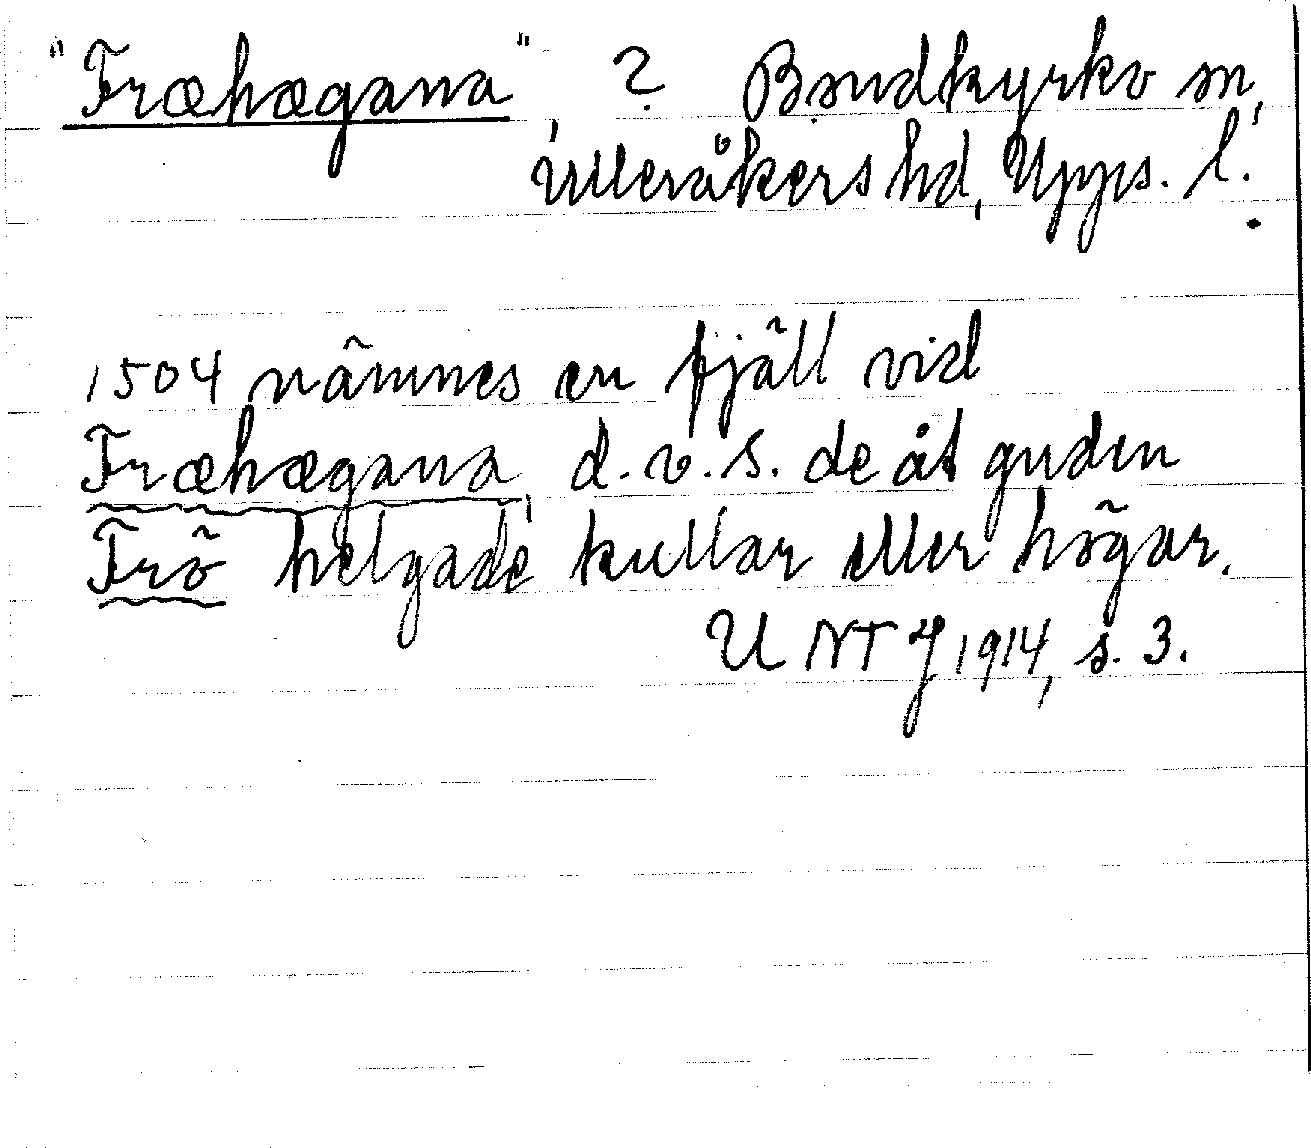 "Fræhægana", ? Bondkyrko sn,
Ulleråkers hd, Upps. l.
1504 nämnes en fjäll vid
Fræhægana, d.v.s. de åt guden
Frö helgade kullar eller högar.
UNT J 1914, s. 3.